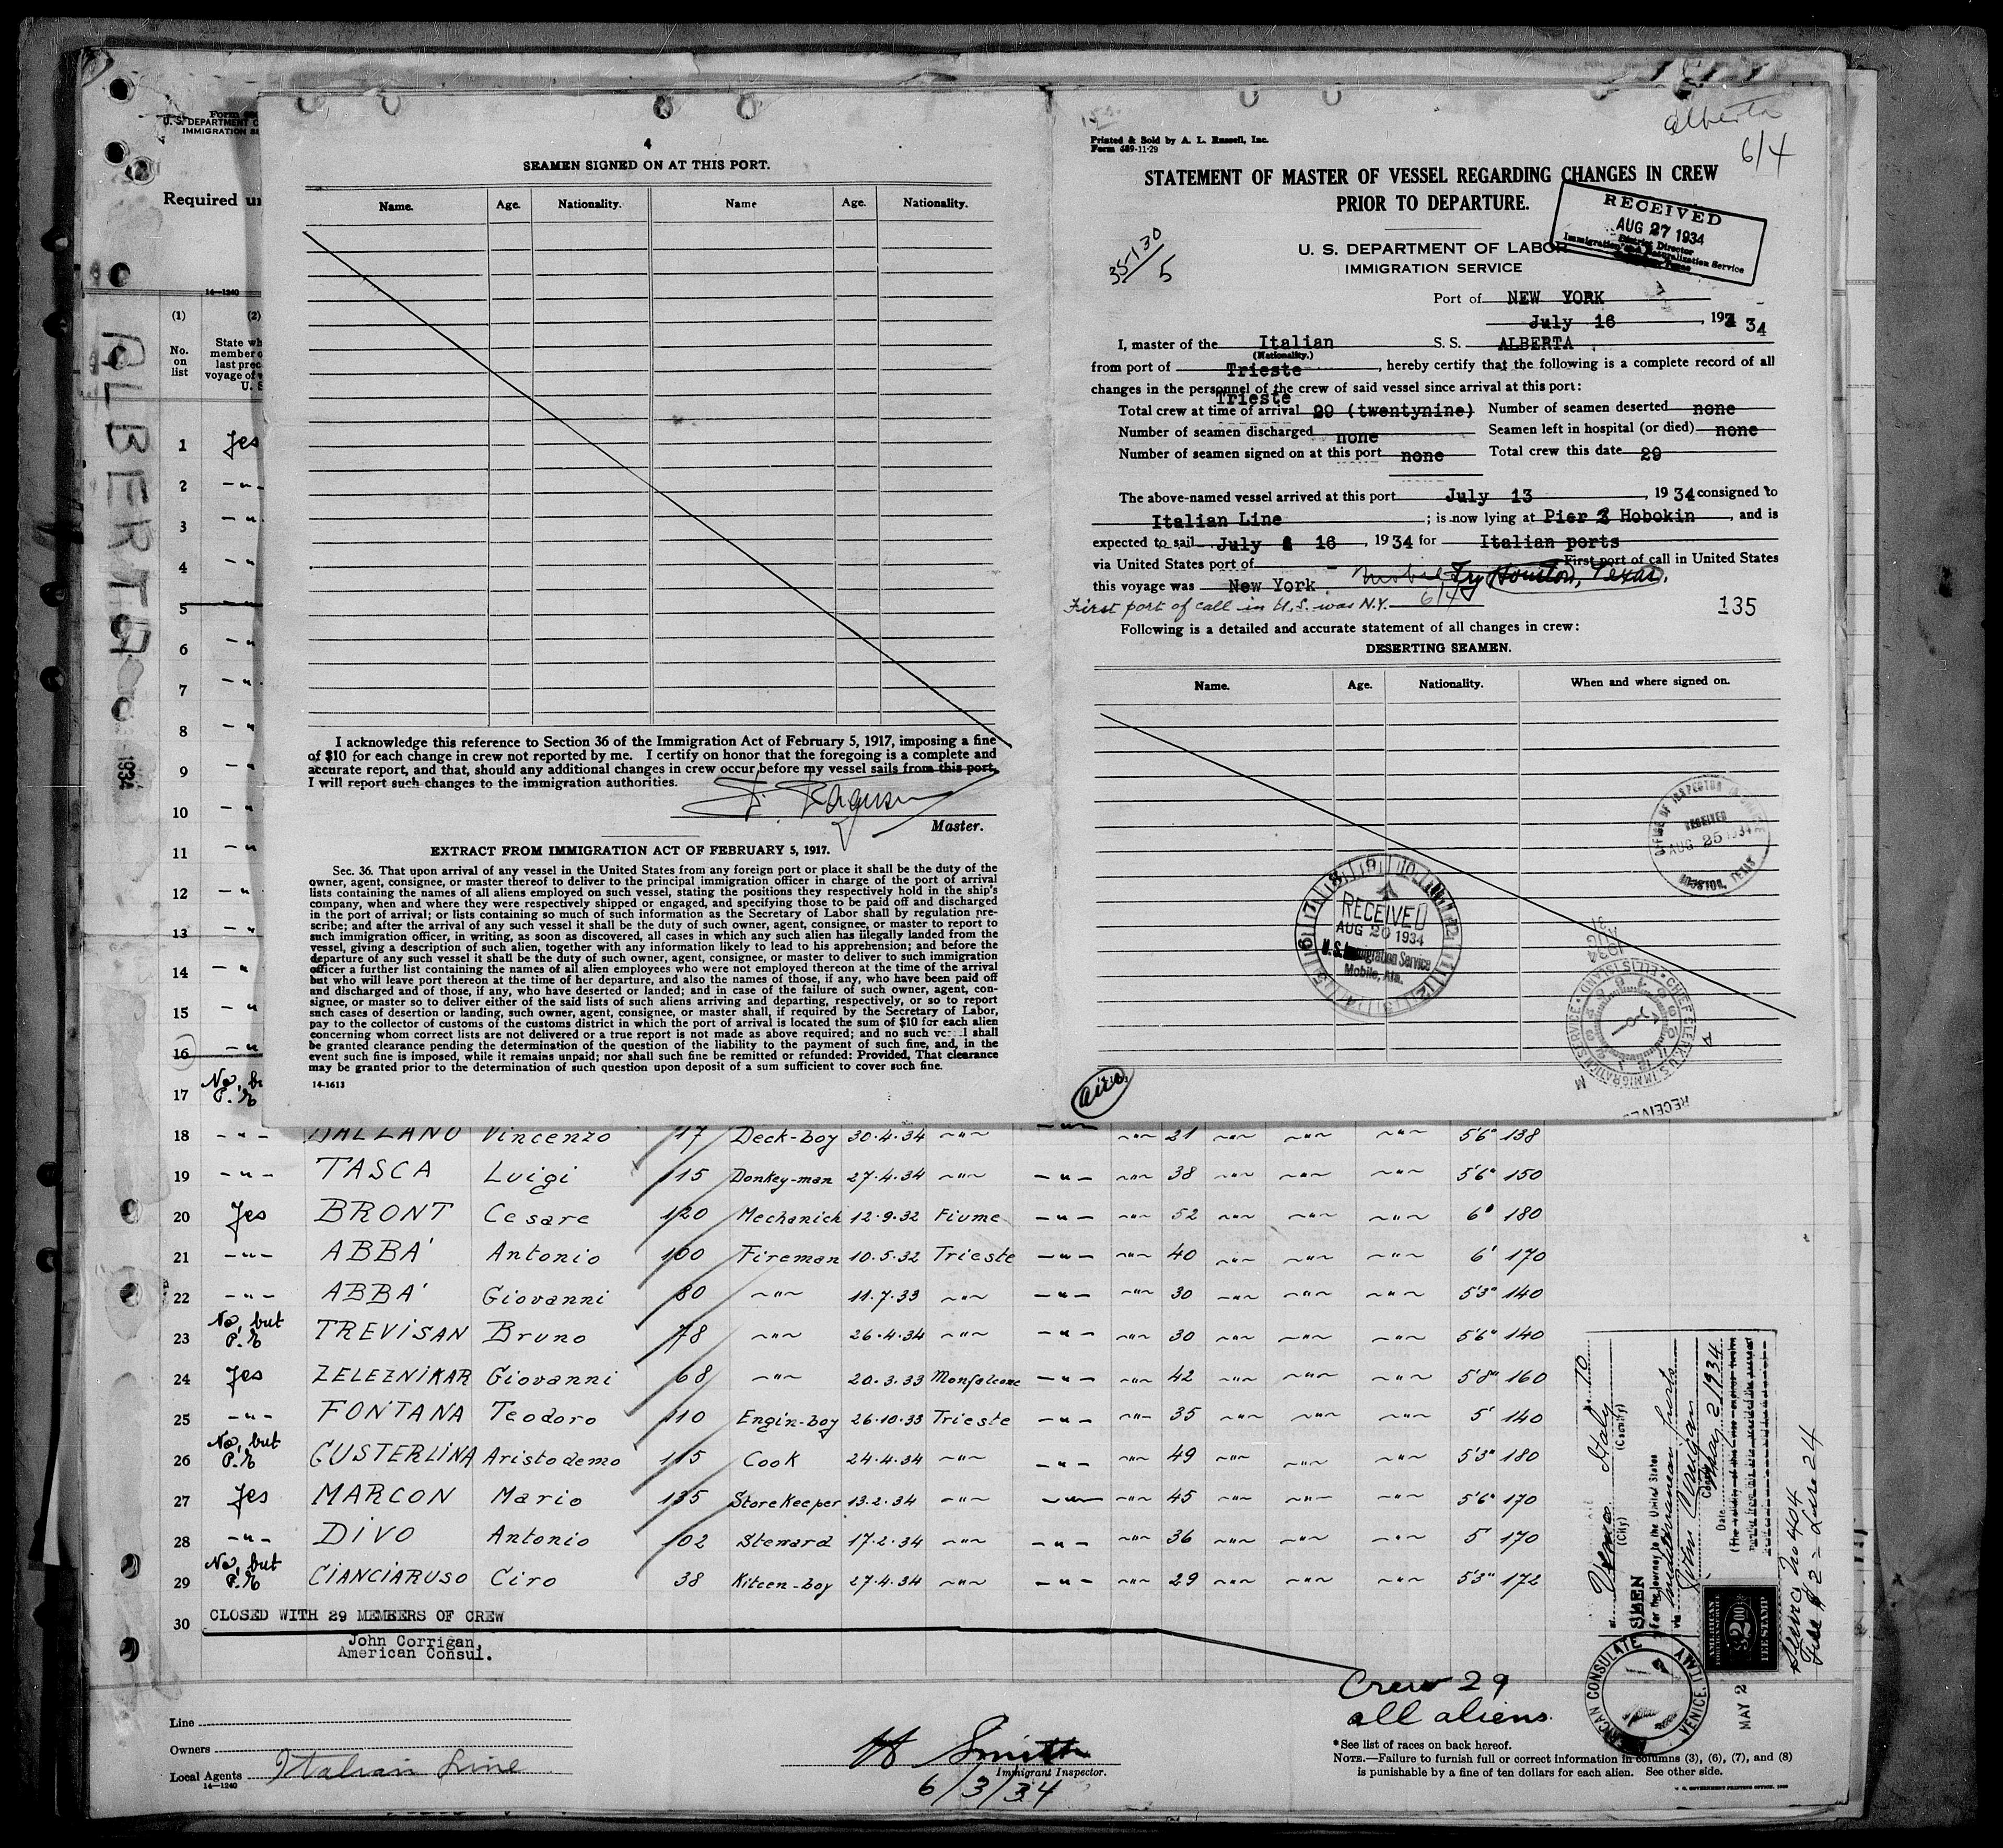 Form
U. S. DEPARTMENT
IMMIGRATION
Required
14—1240
(1)
(2)
No.
on
list
State
member
last prec
voyage of
U. S
ALBERTA
1934
1 Yes
2 -"-
3 -"
4 -"
5 -"
6 -"
7 -"
8 -"
9 -"
10 -"
11 -"
12 -"
13 -"
14 -"
15 -"
16 -"
17 No, P. E
4
SEAMEN SIGNED ON AT THIS PORT.
Name. Age. Nationality. Name Age. Nationality.
I acknowledge this reference to Section 36 of the Immigration Act of February 5, 1917, imposing a fine
of $10 for each change in crew not reported by me. I certify on honor that the foregoing is a complete and
accurate report, and that, should any additional changes in crew occur before my vessel sails from this port,
I will report such changes to the immigration authorities.
Master.
EXTRACT FROM IMMIGRATION ACT OF FEBRUARY 5, 1917.
Sec. 36. That upon arrival of any vessel in the United States from any foreign port or place it shall be the duty of the
owner, agent, consignee, or master thereof to deliver to the principal immigration officer in charge of the port of arrival
lists containing the names of all aliens employed on such vessel, stating the positions they respectively hold in the ship's
company, when and where they were respectively shipped or engaged, and specifying those to be paid off and discharged
in the port of arrival; or lists containing so much of such information as the Secretary of Labor shall by regulation pre-
scribe; and after the arrival of any such vessel it shall be the duty of such owner, agent, consignee, or master to report to
such immigration officer, in writing, as soon as discovered, all cases in which any such alien has illegally landed from the
vessel, giving a description of such alien, together with any information likely to lead to his apprehension; and before the
departure of any such vessel it shall be the duty of such owner, agent, consignee, or master to deliver to such immigration
officer a further list containing the names of all alien employees who were not employed thereon at the time of the arrival
but who will leave port thereon at the time of her departure, and also the names of those, if any, who have been paid off
and discharged and of those, if any, who have deserted or landed; and in case of the failure of such owner, agent, con-
signee, or master so to deliver either of the said lists of such aliens arriving and departing, respectively, or so to report
such cases of desertion or landing, such owner, agent, consignee, or master shall, if required by the Secretary of Labor,
pay to the collector of customs of the customs district in which the port of arrival is located the sum of $10 for each alien
concerning whom correct lists are not delivered or a true report is not made as above required; and no such vessel shall
be granted clearance pending the determination of the question of the liability to the payment of such fine, and, in the
event such fine is imposed, while it remains unpaid; nor shall such fine be remitted or refunded: Provided, That clearance
may be granted prior to the determination of such question upon deposit of a sum sufficient to cover such fine.
14-1613
Alberta
6/4
Printed & Sold by A. L. Russell, Inc.
Form 689-11-29
STATEMENT OF MASTER OF VESSEL REGARDING CHANGES IN CREW
PRIOR TO DEPARTURE.
RECEIVED
AUG 27 1934
District Director
Immigration and Naturalization Service
35-130/5
U. S. DEPARTMENT OF LABOR
IMMIGRATION SERVICE
Port of NEW YORK
July 16, 193 34
I, master of the Italian S. S. ALBERTA
(Nationality.)
from port of Trieste, hereby certify that the following is a complete record of all
changes in the personnel of the crew of said vessel since arrival at this port:
Trieste
Total crew at time of arrival 29 (twentynine) Number of seamen deserted none
Number of seamen discharged none Seamen left in hospital (or died) none
Number of seamen signed on at this port none Total crew this date 29
The above-named vessel arrived at this port July 13, 1934 consigned to
Italian Line; is now lying at Pier 3 Hobokin, and is
expected to sail July 16, 1934 for Italian ports
via United States port of First port of call in United States
this voyage was New York Houston, Texas.
First port of call in U.S. was N.Y. 6/4
135
Following is a detailed and accurate statement of all changes in crew:
DESERTING SEAMEN.
Name. Age. Nationality. When and where signed on.
OFFICE OF INSPECTOR IN
RECEIVED
AUG 25 1934
HOUSTON, TEXAS
RECEIVED
AUG 20 1934
U. S. Immigration Service
Mobile, Ala.
AUG 31
1934
CHIEF CLERK U.S. IMMIGRATION SERVICE • ELLIS ISLAND
RECEIVED
18 -"- Vincenzo 47 Deck-boy 30.4.34 -"- -"- -"- 21 -"- -"- -"- 5'6" 138
19 -"- TASCA Luigi 115 Donkey-man 27.4.34 -"- -"- -"- 38 -"- -"- -"- 5'6" 150
20 Yes BRONT Cesare 120 Mechanich 12.9.32 Fiume -"- -"- 52 -"- -"- -"- 6' 180
21 -"- ABBA' Antonio 100 Fireman 10.5.32 Trieste -"- -"- 40 -"- -"- -"- 6' 170
22 -"- ABBA' Giovanni 80 -"- 11.7.33 -"- -"- -"- 30 -"- -"- -"- 5'3" 140
23 No, but P.E TREViSAN Bruno 78 -"- 26.4.34 -"- -"- -"- 30 -"- -"- -"- 5'6" 140
24 Yes ZELEZNiKAR Giovanni 68 -"- 20.3.33 Monfalcone -"- -"- 42 -"- -"- -"- 5'8" 160
25 -"- FONTANA Teodoro 110 Engin-boy 26.10.33 Trieste -"- -"- 35 -"- -"- -"- 5' 140
26 No, but P.E GUSTERLiNA Aristodemo 115 Cook 24.4.34 -"- -"- -"- 49 -"- -"- -"- 5'3" 180
27 Yes MARCON Mario 135 Storekeeper 13.2.34 -"- -"- -"- 45 -"- -"- -"- 5'6" 170
28 -"- DiVO Antonio 102 Steward 17.2.34 -"- -"- -"- 36 -"- -"- -"- 5' 170
29 No, but P.E CiANCiARUSO Ciro 38 Kiteen-boy 27.4.34 -"- -"- -"- 29 -"- -"- -"- 5'3" 172
30 CLOSED WITH 29 MEMBERS OF CREW
John Corrigan,
American Consul.
Crew 29
all aliens.
Line
Owners
Local Agents Italian Line
14—1240
H Smith
Immigrant Inspector.
6/3/34
*See list of races on back hereof.
NOTE.—Failure to furnish full or correct information in columns (3), (6), (7), and (8)
is punishable by a fine of ten dollars for each alien. See other side.
U. S. GOVERNMENT PRINTING OFFICE
No. 70
at Venice Italy
(City) (Country)
SEEN
For the journey to the United States
via mediterranean ports
John Corrigan
Consul
Date May 2 1934
AMERICAN
FOREIGN SERVICE
$2.00
FEE STAMP
Service No 404
Fee $2 = Lire 24
AMERICAN CONSULATE
VENICE, ITALY
MAY 2